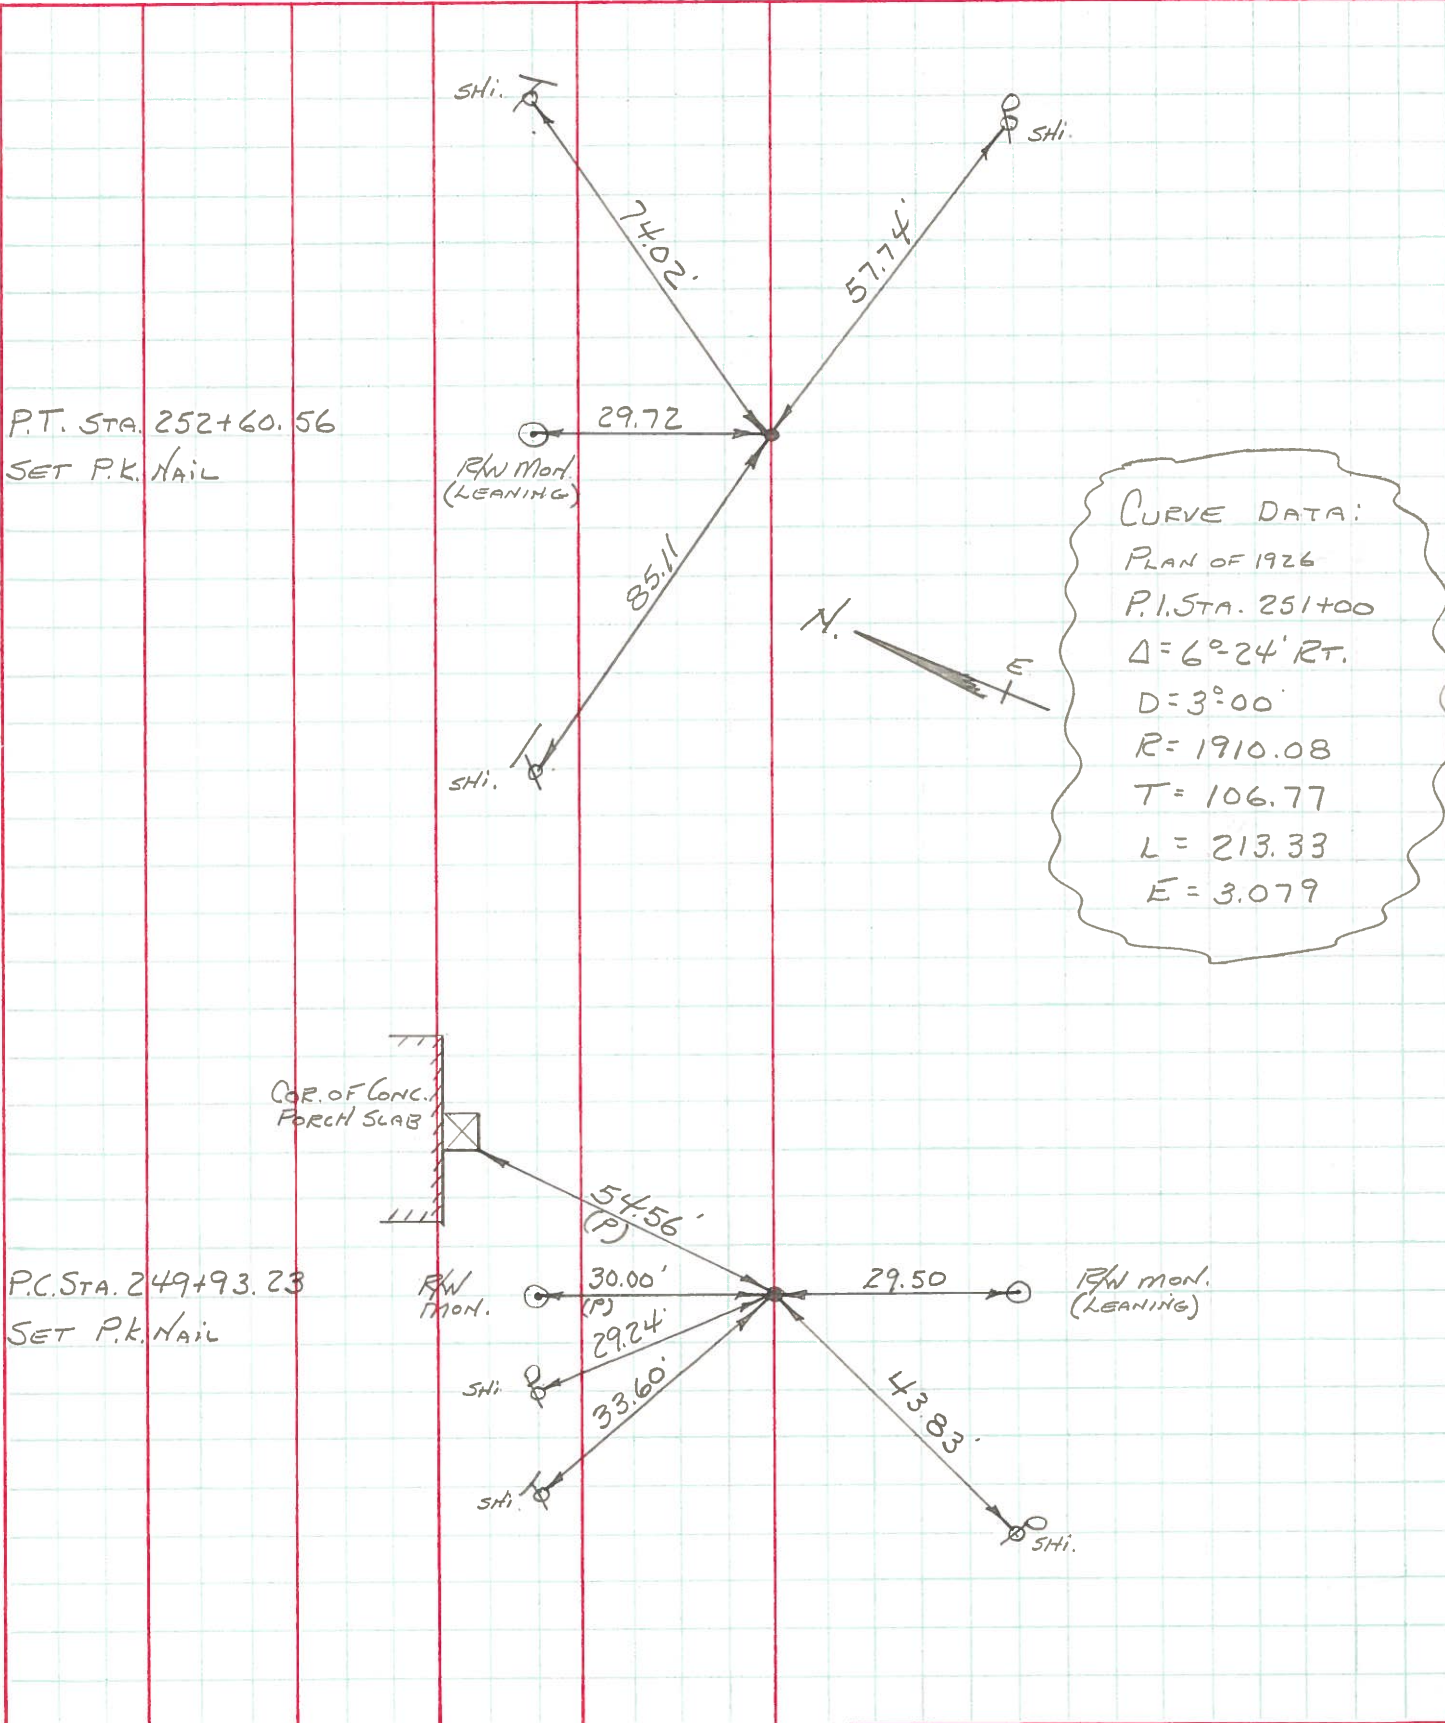 SHi.
SHi.
74.02'
57.74'
P.T. STA. 252+60.56
SET P.K. NAiL
29.72
R/W MON.
(LEANING)
85.11
SHi.
N.
E
CURVE DATA:
PLAN OF 1926
P.I. STA. 251+00
Δ = 6°-24' RT.
D = 3°00'
R = 1910.08
T = 106.77
L = 213.33
E = 3.079
COR. OF CONC.
PORCH SLAB
54.56'
(P)
P.C. STA. 249+93.23
SET P.K. NAiL
R/W
MON.
30.00'
(P)
29.50
R/W MON.
(LEANING)
29.24'
SHi.
33.60'
SHi.
43.83'
SHi.